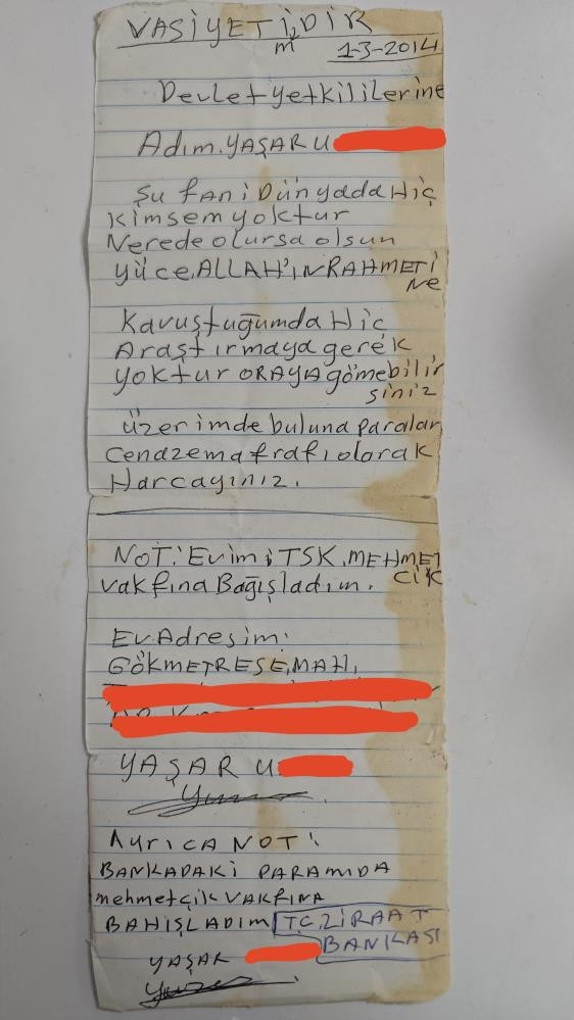 VASİYETİMDİR
1-3-2014
Devlet yetkililerine
Adım. YAŞAR U
Şu fani Dünyada Hiç
Kimsem yoktur
Nerede olursa olsun
yüce, ALLAH'IN RAHMETİ
Ne
Kavuştuğumda Hiç
Araştırmaya gerek
yoktur ORAYA gömebilir
siniz
üzerimde buluna paraları
Cenazema frafı olorak
Harcayınız.
NOT: Evimi TSK. MEHMET
CİK
vakfına Bağışladım.
Ev Adresim:
GÖKMETRESE, MAH,
YAŞAR U
Ayrıca NOT:
BANKADAKİ PARAMIDA
mehmetçik VAKFINA
BAHIŞLADIM T.C. ZİRAAT
BANKASI
YAŞAR